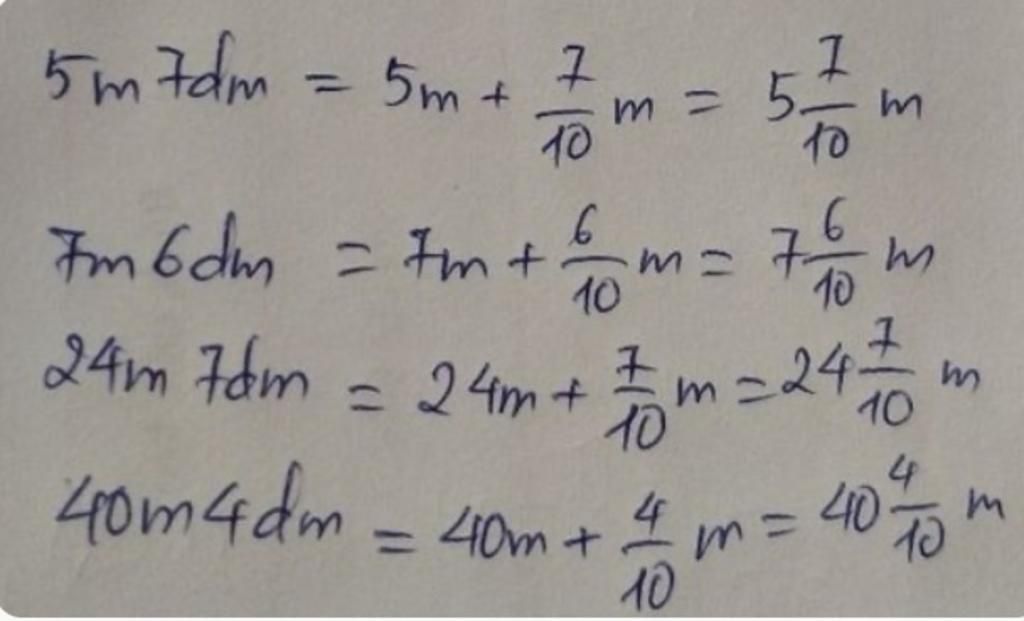 5m 7dm = 5m + 7/10 m = 5 7/10 m
7m 6dm = 7m + 6/10 m = 7 6/10 m
24m 7dm = 24m + 7/10 m = 24 7/10 m
40m 4dm = 40m + 4/10 m = 40 4/10 m